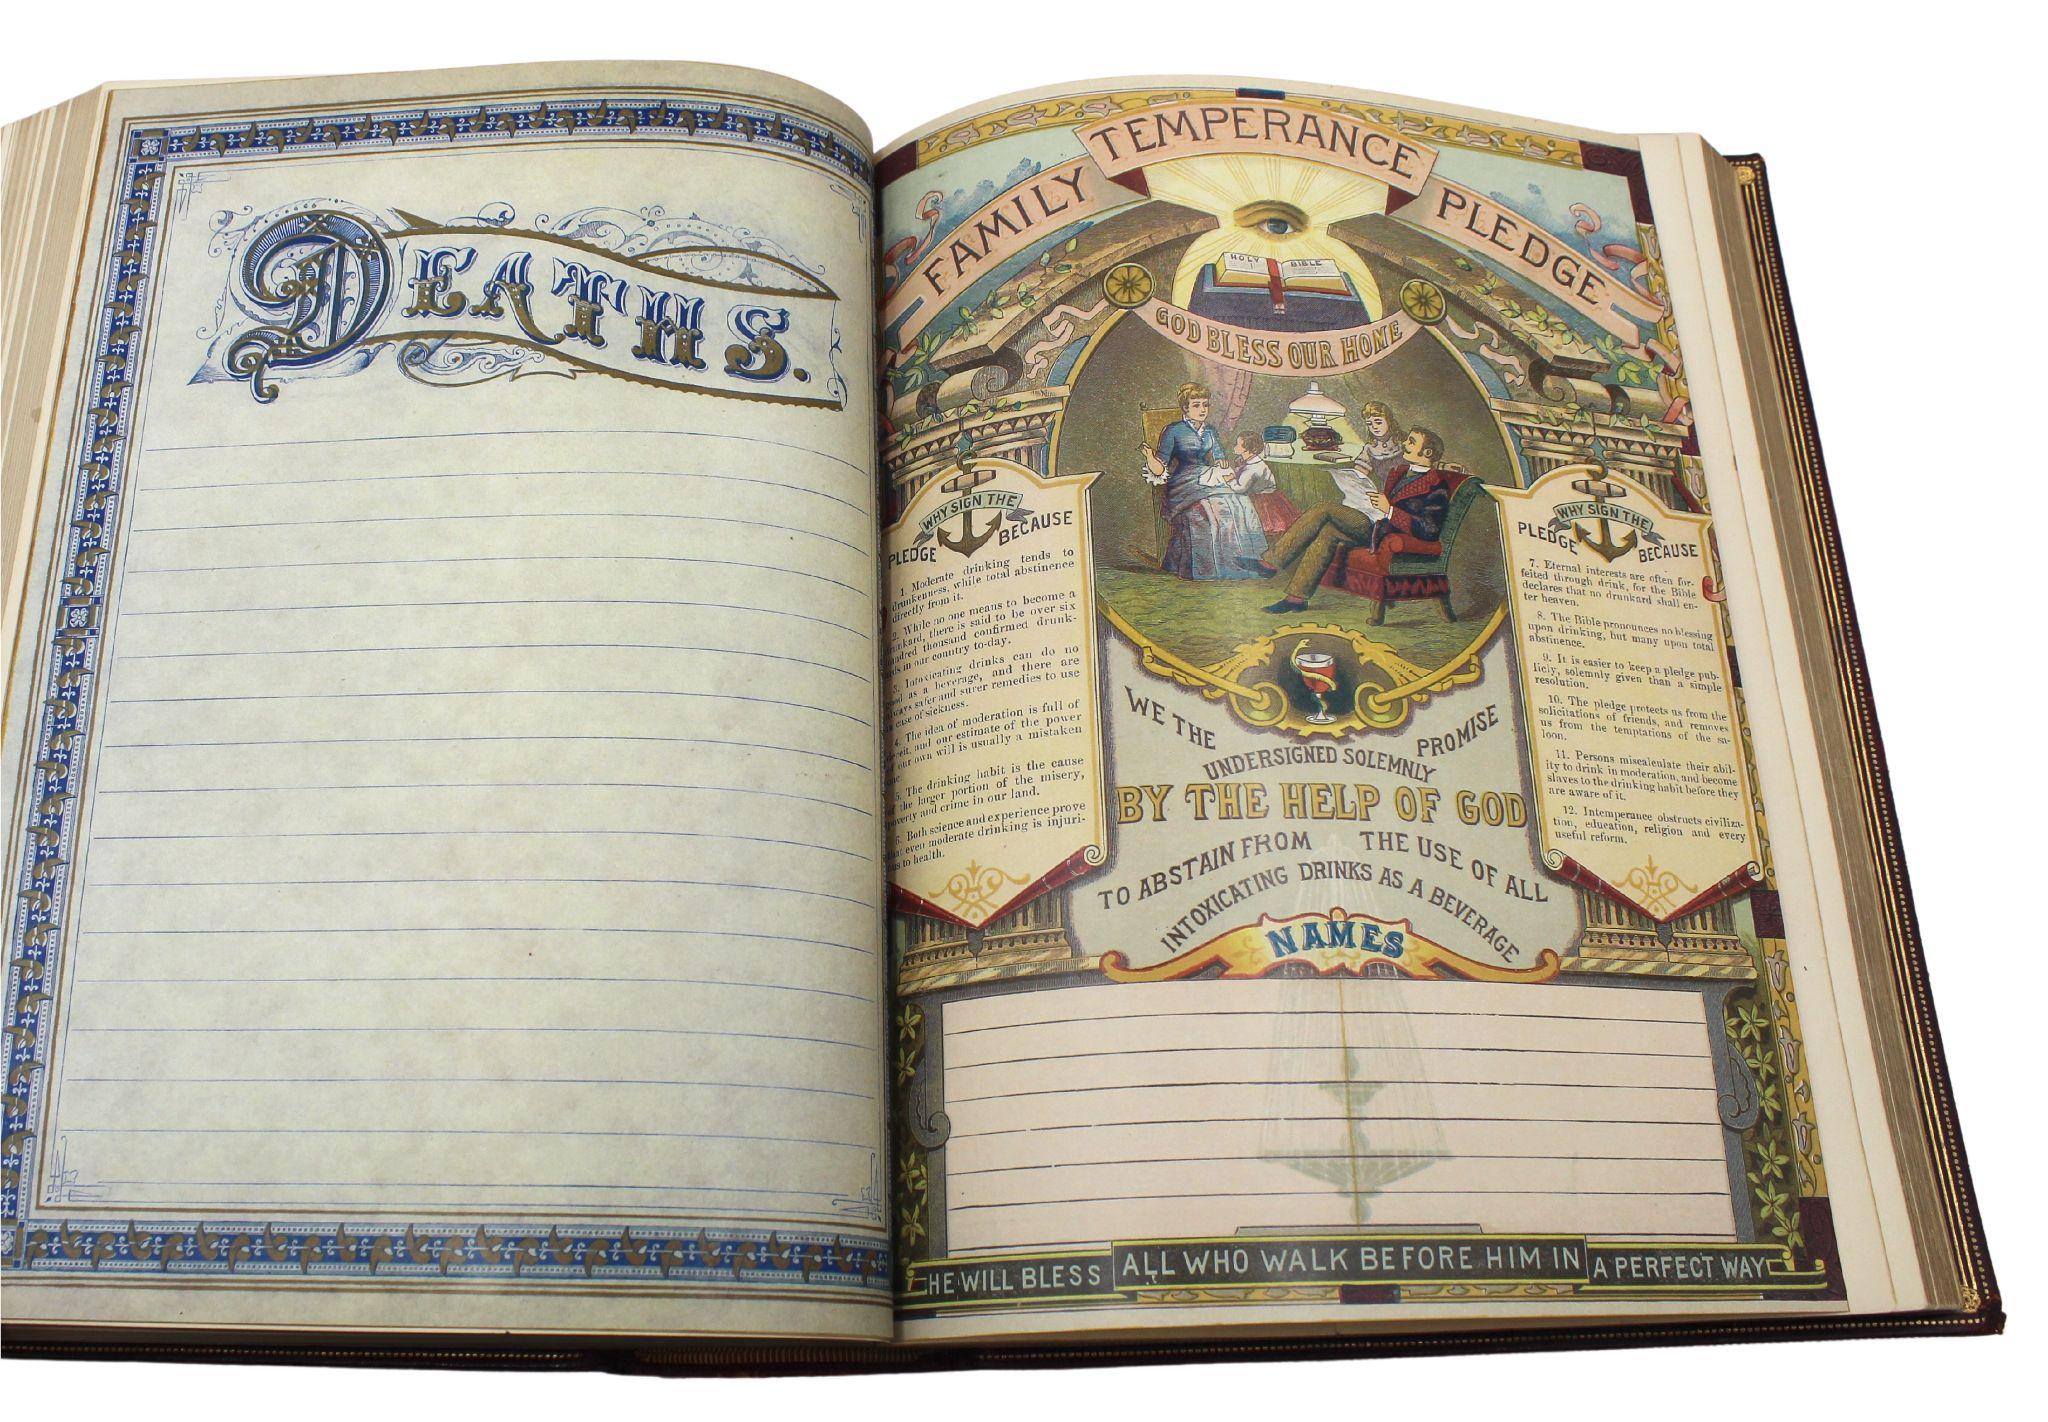 DEATHS.
FAMILY TEMPERANCE PLEDGE
HOLY BIBLE
GOD BLESS OUR HOME
WHY SIGN THE
PLEDGE BECAUSE
1. Moderate drinking tends to
drunkenness, while total abstinence
directly from it.
2. While no one means to become a
drunkard, there is said to be over six
hundred thousand confirmed drunk-
in our country to-day.
3. Intoxicating drinks can do no
good as a beverage, and there are
always safer and surer remedies to use
case of sickness.
4. The idea of moderation is full of
and our estimate of the power
of our own will is usually a mistaken
5. The drinking habit is the cause
of the larger portion of the misery,
poverty and crime in our land.
6. Both science and experience prove
that even moderate drinking is injuri-
to health.
WHY SIGN THE
PLEDGE BECAUSE
7. Eternal interests are often for-
feited through drink, for the Bible
declares that no drunkard shall en-
ter heaven.
8. The Bible pronounces no blessing
upon drinking, but many upon total
abstinence.
9. It is easier to keep a pledge pub-
licly, solemnly given than a simple
resolution.
10. The pledge protects us from the
solicitations of friends, and removes
us from the temptations of the sa-
loon.
11. Persons miscalculate their abil-
ity to drink in moderation, and become
slaves to the drinking habit before they
are aware of it.
12. Intemperance obstructs civiliza-
tion, education, religion and every
useful reform.
WE THE
UNDERSIGNED SOLEMNLY
PROMISE
BY THE HELP OF GOD
TO ABSTAIN FROM THE USE OF ALL
INTOXICATING DRINKS AS A BEVERAGE
NAMES
HE WILL BLESS ALL WHO WALK BEFORE HIM IN A PERFECT WAY